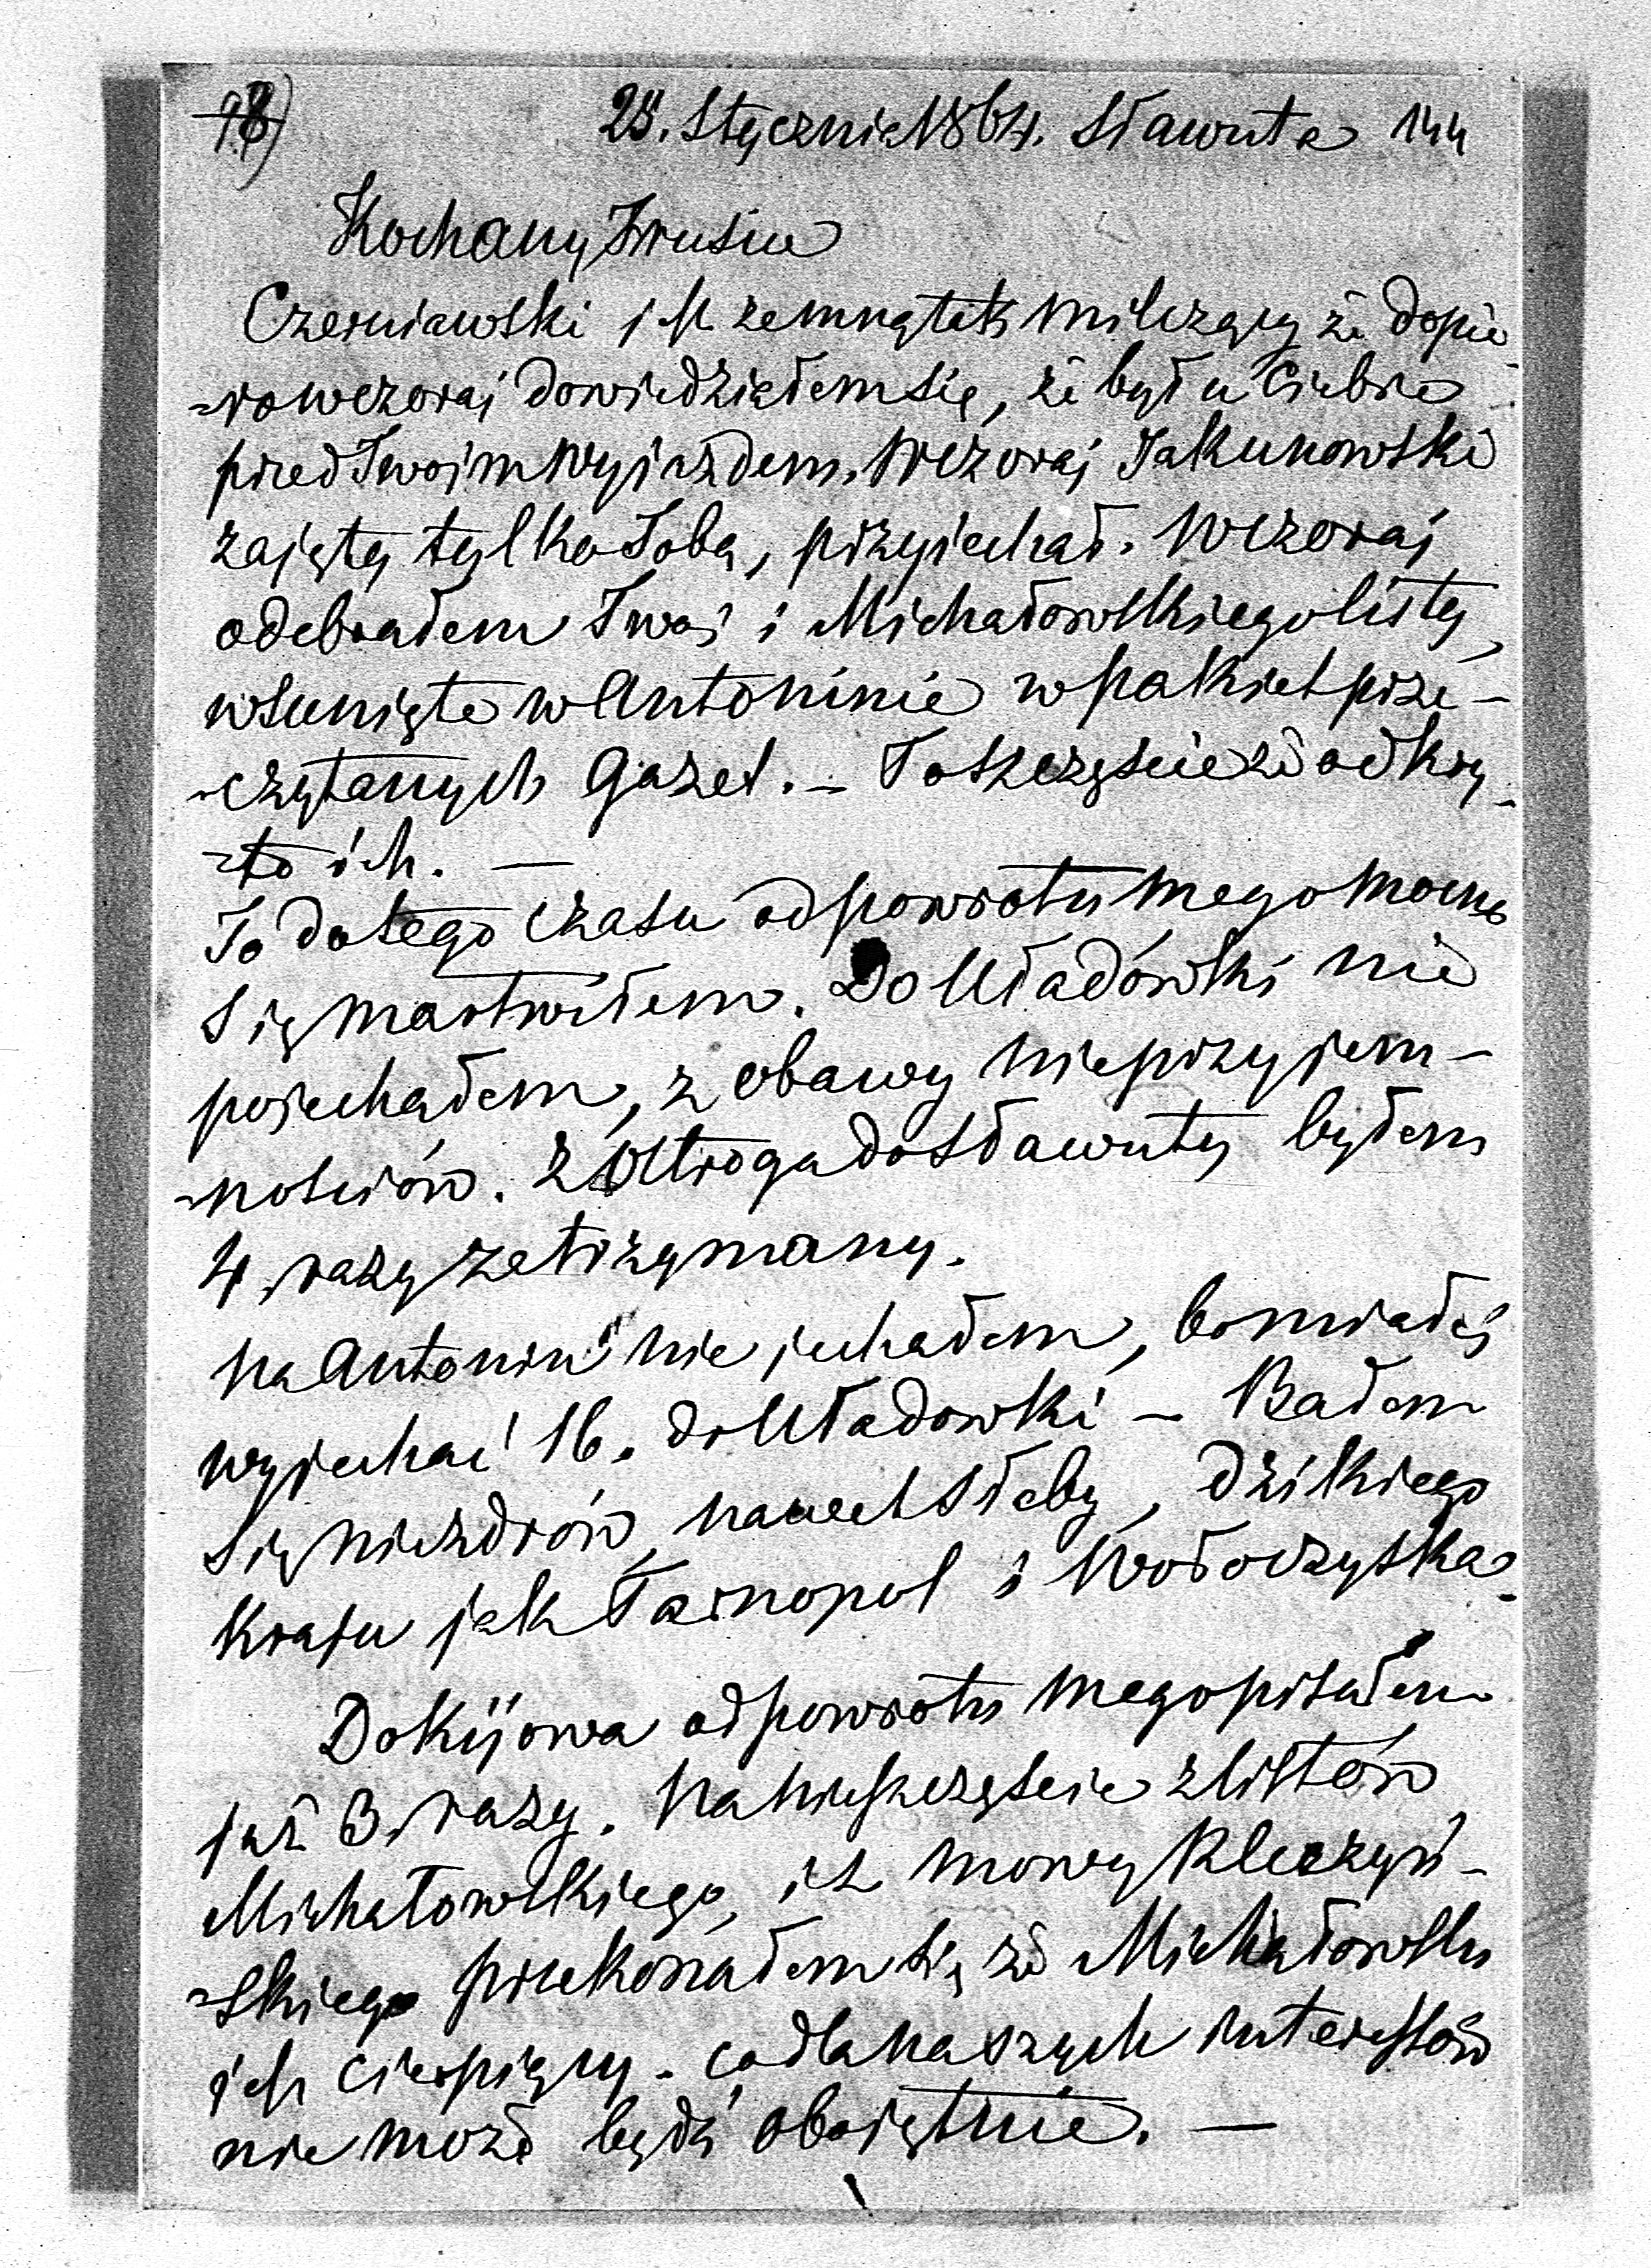 28. Stycznia 1864. Sławuta 144
Kochany Irusiu
Czerniawski jest zemną tak milczący że dopie-
-ro wczoraj dowiedziałem się, że był u Ciebie
przed Twoim wyjazdem. Wczoraj Jakunowski
zajęty tylko Tobą, przyjechał. Wczoraj
odebrałem Twój i Michałowskiego listy,
wsunięte w Antoninie w pakiet prze-
-czytanych Gazet. – To szczęście że odkry-
-to ich. —
Ja do tego czasu od powrotu mego mocno
się martwiłem. Do Uładówki nie
pojechałem, z obawy nieprzyjem-
-nościów. Z Ostroga do Sławuty byłem
4 razy zatrzymany.
na Antonin nie jechałem, bo miałeś
wyjechać 16. do Uładowki – Bałem
się niezdrów, nawet słaby, dzikiego
Kraju jak Tarnopol i Wołoczyska.
Do Kijowa od powrotu mego pisałem
już 3 razy. Na nieszczęście z listów
Michałowskiego, i z mowy Kleczyń-
-skiego przekonałem się że Michałowski
jest cierpiący. co dla naszych interessów
nie może bydź obojętnie. —